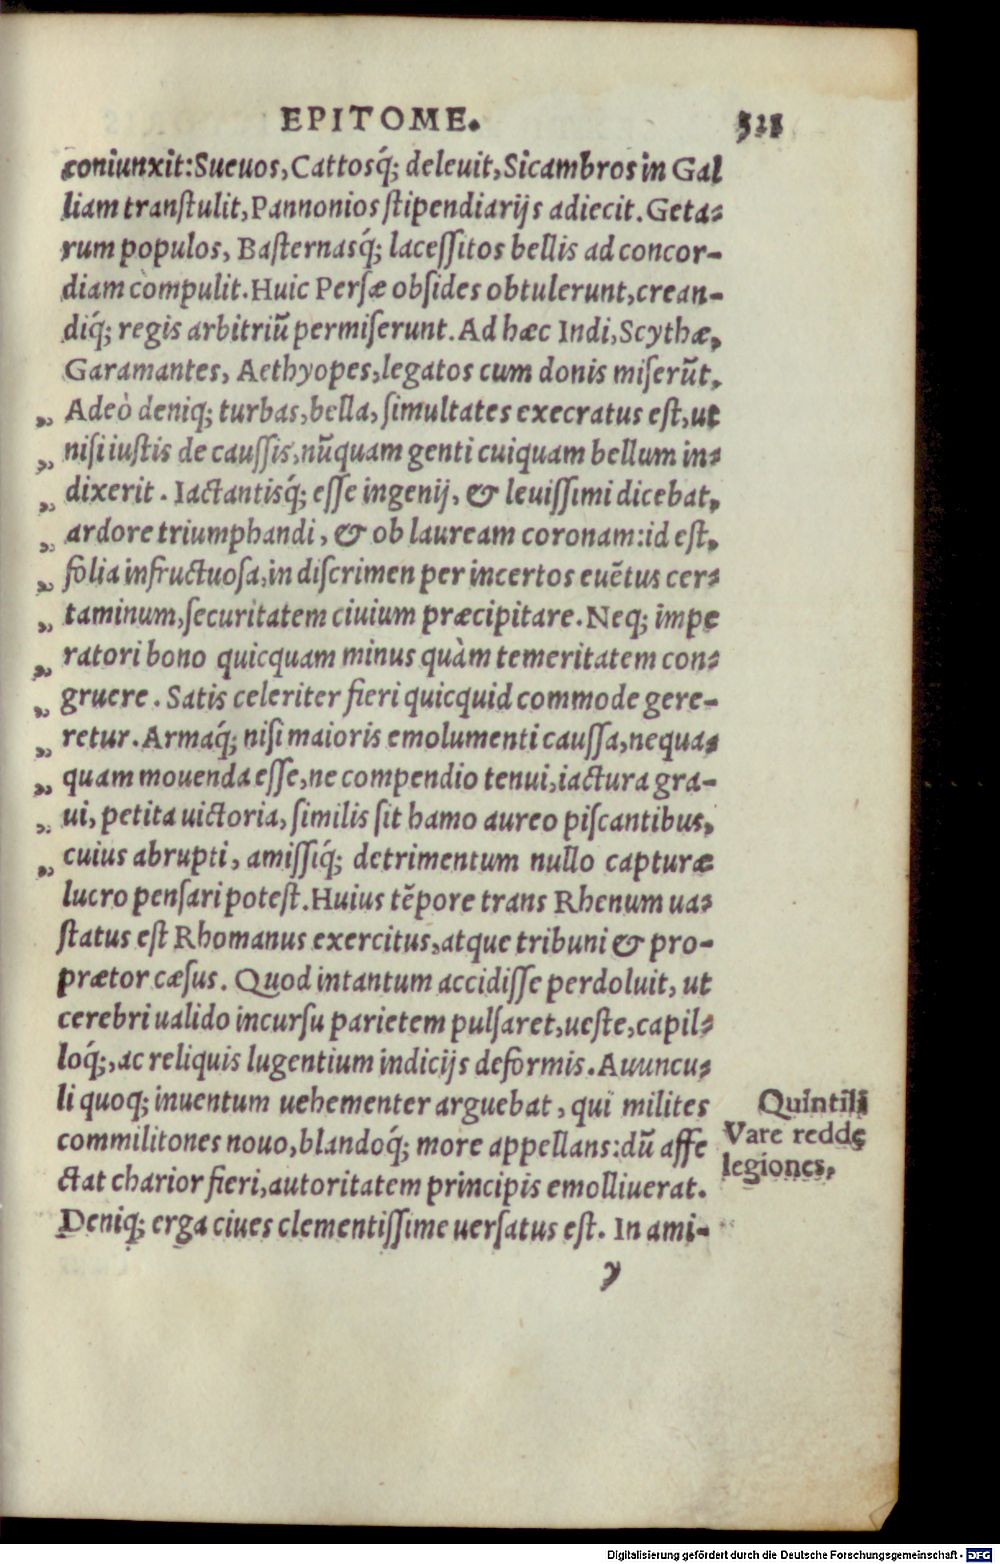 EPITOME.
coniunxit: Sueuos, Cattosq́; deleuit, Sicambros in Gal
liam transtulit, Pannonios stipendiarijs adiecit. Geta-
rum populos, Basternasq́; lacessitos bellis ad concor-
diam còmpulit. Huic Persæ obsides obtulerunt, crean-
diq́; regis arbitriũ permiserunt. Ad hæc Indi, Scythæ,
Garamantes, Aethyopes, legatos cum donis miserũt,
„ Adeò deniq; turbas, bella, simultates execratus est, ut
„ nisi iustis de caussis, nũquam genti cuiquam bellum in-
„ dixerit. Iactantisq́; esse ingenij, & leuissimi dicebat,
„ ardore triumphandi, & ob lauream coronam: id est,
„ folia infructuosa, in discrimen per incertos euẽtus cer-
„ taminum, securitatem ciuium præcipitare. Neq; impe
„ ratori bono quicquam minus quàm temeritatem con-
„ gruere. Satis celeriter fieri quicquid commode gere-
„ retur. Armaq́; nisi maioris emolumenti caussa, nequa-
„ quam mouenda esse, ne compendio tenui, iactura gra-
„ ui, petita uictoria, similis sit hamo aureo piscantibus,
„ cuius abrupti, amissiq́; detrimentum nullo capturæ
lucro pensari potest. Huius tẽpore trans Rhenum ua-
status est Rhomanus exercitus, atque tribuni & pro-
prætor cæsus. Quod intantum accidisse perdoluit, ut
cerebri ualido incursu parietem pulsaret, ueste, capil-
loq́;, ac reliquis lugentium indicijs deformis. Auuncu-
li quoq; inuentum uehementer arguebat, qui milites
commilitones nouo, blandoq́; more appellans: dũ affe
ctat charior fieri, autoritatem principis emolliuerat.
Deniq; erga ciues clementissime uersatus est. In ami-
Quintili
Vare redde
legiones,
y
Digitalisierung gefördert durch die Deutsche Forschungsgemeinschaft - DFG